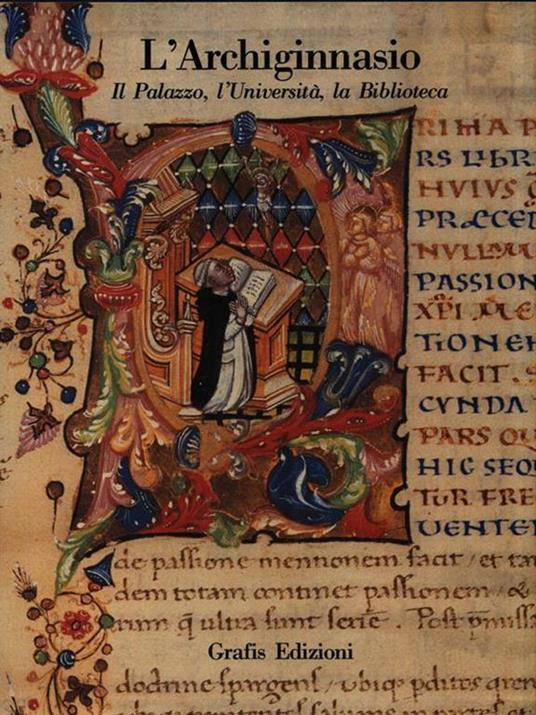 L'Archiginnasio
Il Palazzo, l'Università, la Biblioteca
RIMA P
RS LIBRI
HUIUS
PRÆCED
NULLAM
PASSION
XPI ME
TIONEM
FACIT. S
CUNDA
PARS QU
HIC SEQU
TUR FRE
UENTER
de passione mentionem facit / et tan
dem totam continet passionem /
rum q̃ ultra sunt serie. Post p̃missa
Grafis Edizioni
doctrine spargens / ubiq3 p̃ditos
saluamus in partes et